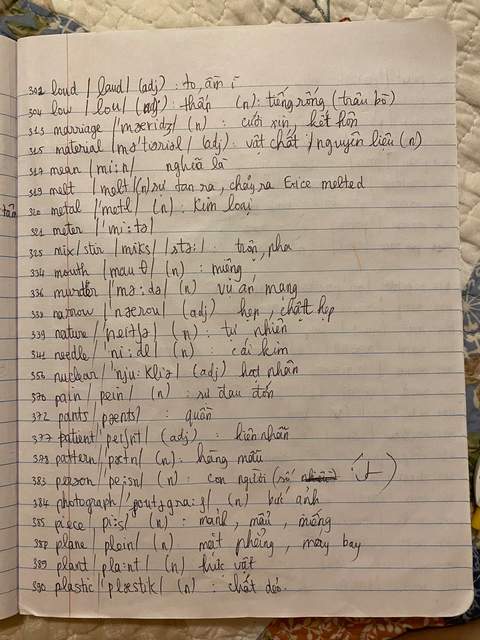 302 loud /laud/ (adj): to, ầm ĩ
304 low /lou/ (adj): thấp (n): tiếng rống (trâu bò)
313 marriage /'mæridʒ/ (n): cưới xin, kết hôn
315 material /mə'tiəriəl/ (adj): vật chất / nguyên liệu (n)
317 mean /mi:n/ nghĩa là
319 melt /melt/ (n) sự tan ra, chảy ra
melted
320 metal /'metl/ (n): kim loại
321 meter /'mi:tə/
325 mix/stir /miks/ /stə:/: trộn, pha
334 mouth /mauθ/ (n): miệng
336 murder /'mə:də/ (n) vụ án mạng
narrow /'nærou/ (adj) hẹp, chật hẹp
339 nature /'neitʃə/ (n): tự nhiên
341 needle /'ni:dl/ (n): cái kim
nuclear /'nju:kliə/ (adj) hạt nhân
370 pain /pein/ (n): sự đau đớn
372 pants /pænts/: quần
377 patient /'peiʃnt/ (adj): kiên nhẫn
pattern /'pætn/ (n): hàng mẫu
383 person /'pə:sn/ (n): con người (số ít)
384 photograph /'foutəgra:f/ (n) bức ảnh
385 piece /pi:s/ (n): mảnh, mẩu, miếng
388 plane /plein/ (n): mặt phẳng, máy bay
389 plant /pla:nt/ (n) thực vật
390 plastic /'plæstik/ (n): chất dẻo.